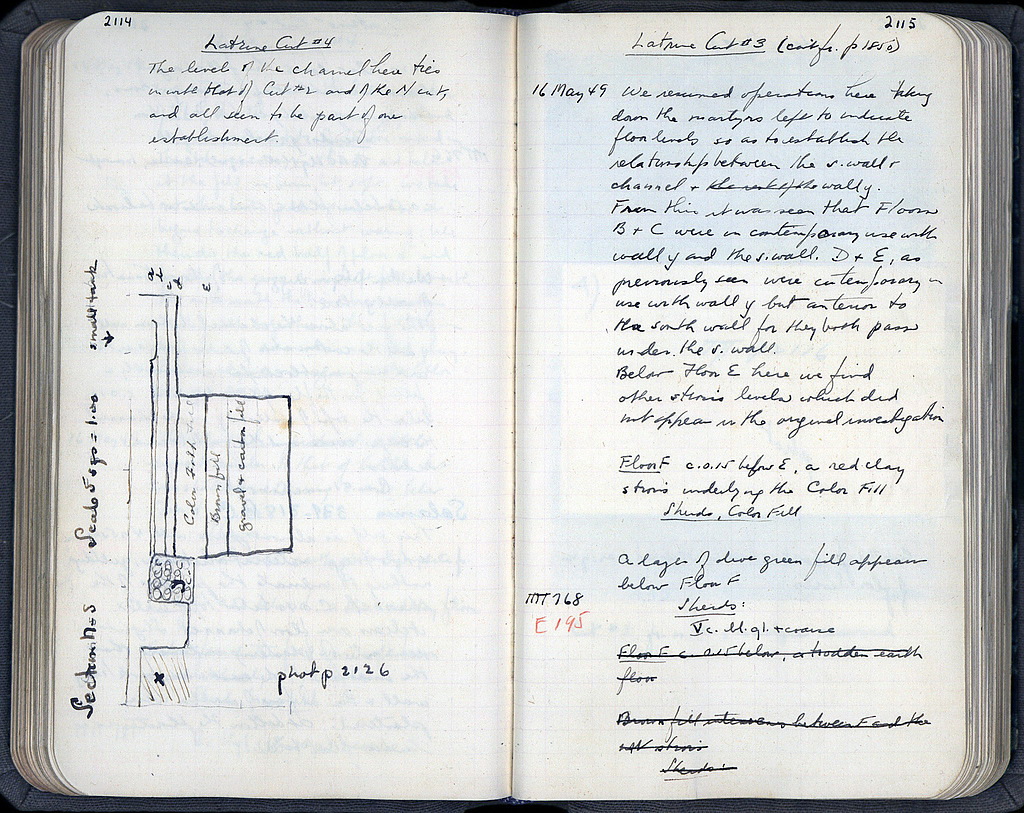 2114
Latrine Cut #4
The level of the channel here ties
in with that of Cut #2 and of the N cut,
and all seem to be part of one
establishment.
small tank
a
b
c
d
E
Color Fill
Brown fill
gravel + carbon fill
y
x
Section N-S Scale 5 sqs = 1.00
phot p 2126
2115
Latrine Cut #3 (cont fr. p 1850)
16 May 49 We resumed operations here taking
down the martyrs left to indicate
floor levels so as to establish the
relationship between the s. wall +
channel + the rest of the wall y.
From this it was seen that Floors
B + C were in contemporary use with
wall y and the s. wall. D + E, as
previously seen were contemporary in
use with wall y but anterior to
the south wall for they both pass
under the s. wall.
Below Floor E here we find
other strosis levels which did
not appear in the original investigation
Floor F c. 0.15 below E, a red clay
strosis underlying the Color Fill
Sherds, Color Fill
A layer of olive green fill appears
below Floor F
ΠΠ 768
Sherds:
E 195
V c. bl. gl. + coarse
Floor F c. 0.15 below, a trodden earth
floor
Brown fill intervening between F and the
strosis
Sherds: